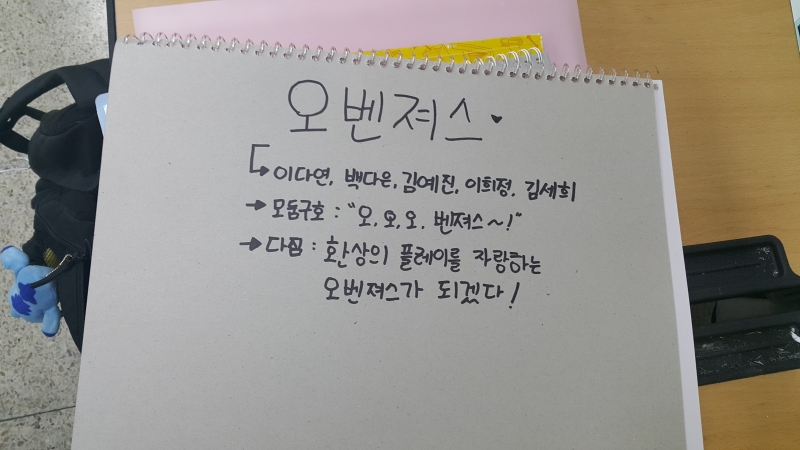 오벤져스♥
→ 이다연, 백다은, 김예진, 이희정, 김세희
→ 모둠구호 : "오, 오, 오, 벤져스~!"
→ 다짐 : 환상의 플레이를 자랑하는
오벤져스가 되겠다!